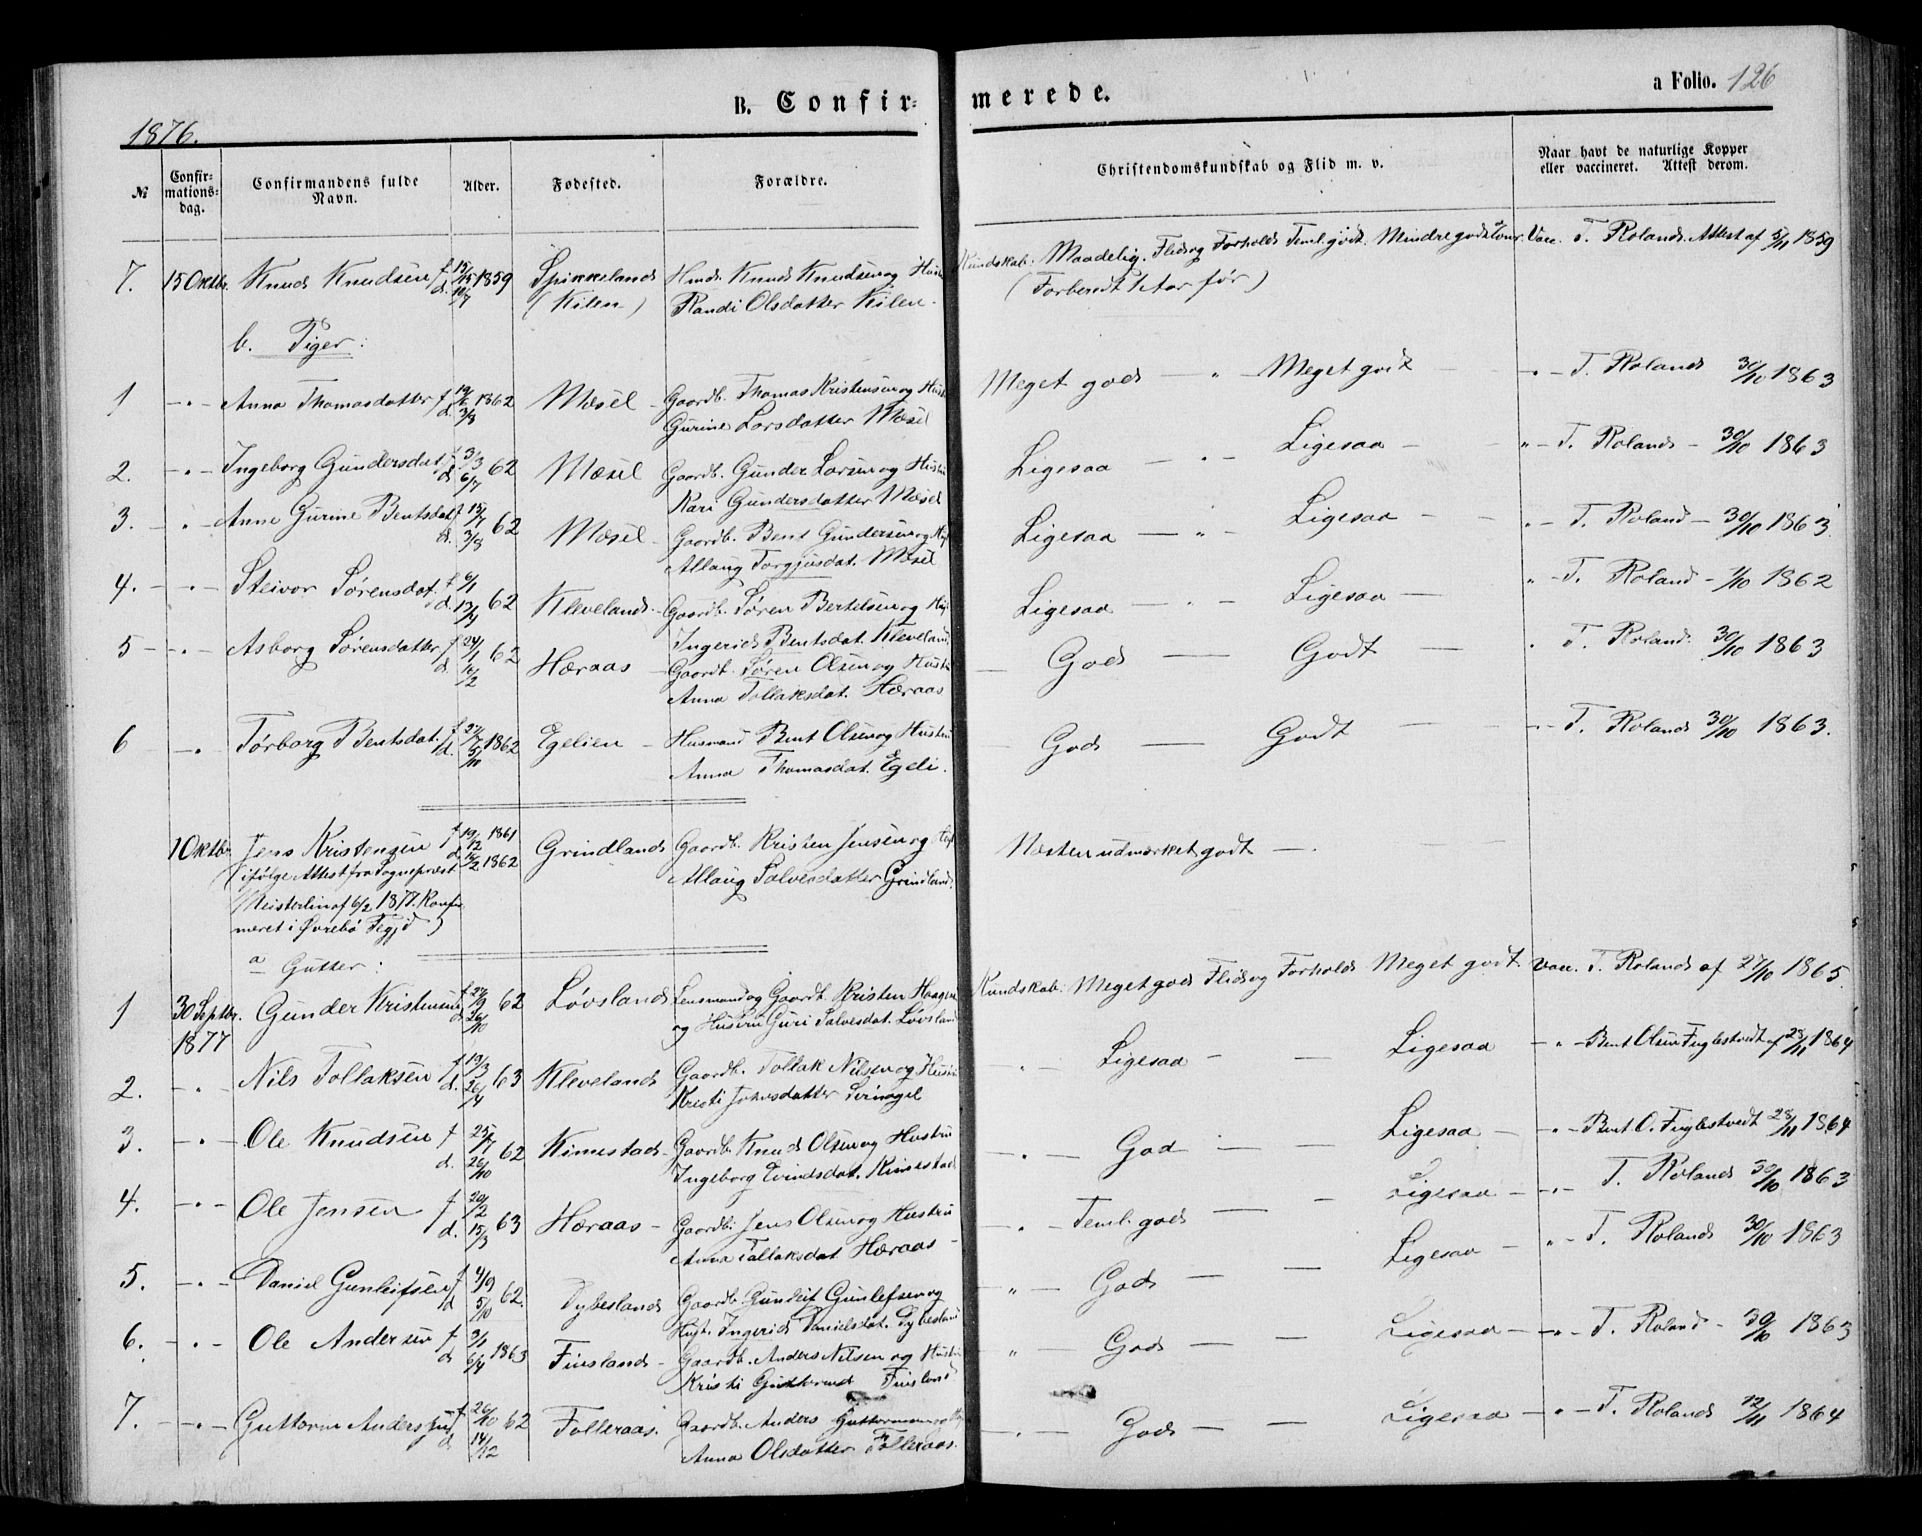 B. Confirmerede.
a Folio. 126
1876.
№ Confirmationsdag. Confirmandens fulde Navn. Alder. Fødested. Forældre. Christendomskundskab og Flid m. v. Naar havt de naturlige Kopper eller vaccineret. Attest derom.
7. 15 Oktbr. Knud Knudsen f. 1859 Spikkeland Hmd. Knud Knudsen og Kundskab: Maadelig. Flid og Forhold Teml. godt. Mindre godt Vacc. T. Roland. Attest af 5/11 1859
d. (Kilen) Randi Olsdatter Kilen. (Forberedt 1 Aar før)
b. Piger:
1 -"- Anna Thomasdatter f. 19/6 1862 Mæsel Gaardb. Thomas Kristensen og Meget god " Meget godt -"- T. Roland 30/10 1863
d. 3/8 Gurine Larsdatter Mæsel
2. -"- Ingeborg Gundersdat. f. 3/3 62 Mæsel Gaardb. Gunder Larsen og Hustru Ligesaa -"- Ligesaa "- T. Roland - 30/10 1863
d. 6/7 Kari Gundersdatter Mæsel
3. -"- Anne Gurine Bentsdat. f. 62 Mæsel Gaardb. Bent Gundersen og Ligesaa -"- Ligesaa "- T. Roland - 30/10 1863.
d. 3/8 Allaug Torgjusdat. Mæsel
4. -"- Steivor Sørensdat. f. 6/1 62 Kleveland Gaardb. Søren Bertelsen og Ligesaa -"- Ligesaa "- T. Roland - 1/10 1862
d. 13/4 Ingerid Bentsdat. Kleveland
5 -"- Asborg Sørensdatter f. 24/1 62 Hæraas Gaardb. Søren Olsen og Hustru God Godt " T. Roland 30/10 1863
d. Anna Tollaksdat. Hæraas
6 -"- Tørborg Bentsdat. f. 1862 Egelien Husmand Bent Olsen og Hustru God Godt -"- T. Roland 30/10 1863.
d. 5/10 Anna Thomasdat. Egeli.
1 Oktbr. Jens Kristensen f. 19/12 1861 Grindland Gaardb. Kristen Jensen og Næsten udmærket godt
d. 1862 Allaug Salvesdatter Grindland.
(ifølge Attest fra Sognepræst
Meisterlin af 6/2 1877. Konfir
meret i Øvrebø
a Gutter:
1 30 Septbr. 1877 Gunder Kristensen f. 62 Løvsland Lensmand og Gaardb. Kristen Haagen Kundskab: Meget god Flid og Forhold Meget godt. Vacc. T. Roland af 27/10 1865.
d. 26/10 og Hustru Guri Salvesdat. Løvsland
2. -"- Nils Tollaksen f. 19/3 63 Kleveland Gaardb. Tollak Nilsen og Hustru -"- Ligesaa Ligesaa -"- Bent Olsen Fuglestvedt af 28/11 1864
d. 26/4 Kristi
3. -"- Ole Knudsen f. 25/7 62 Kimestad Gaardb. Knud Olsen og Hustru -"- God Ligesaa -"- Bent O. Fuglestvedt 28/11 1864
d. 26/10 Ingeborg Evindsdat. Kimestad
4. -"- Ole Jensen f. 20/2 63 Hæraas Gaardb. Jens Olsen og Hustru -"- Teml. god Ligesaa -"- T. Roland 30/10 1863
d. 15/3 Anna Tallaksdat. Hæraas
5. -"- Daniel Gunleifsen f. 4/9 62. Dybesland Gaardb. Gunleif Gunlefsen og " God Ligesaa "- T. Roland 30/10 1863
d. 5/10 Hust. Ingerid Danielsdat. Dybesland
6. -"- Ole Andersen f. 3/1 1863 Finsland Gaardb. Anders Nilsen og Hustru " God Ligesaa -"- T. Roland - 30/10 1863
d. 6/4 Kristi Finsland
7. -"- Guttorm Andersen f. 26/10 62 Folleraas. Gaardb. Anders Guttormsen og -"- God Ligesaa -"- T. Roland 12/11 1864
d. 14/12 Anna Olsdatter Folleraas.